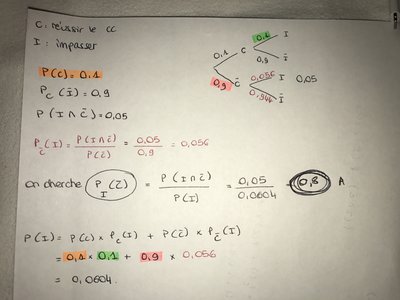 C : réussir le CC
I : impasser
P(C) = 0,1
P_C(Ī) = 0,9
P(I ∩ C̄) = 0,05
0,1 C 0,1 I
0,9 Ī
0,9 C̄ 0,056 I 0,05
0,944 Ī
P_C̄(I) = P(I ∩ C̄) / P(C̄) = 0,05 / 0,9 = 0,056
on cherche P_I(C̄) = P(I ∩ C̄) / P(I) = 0,05 / 0,0604 = 0,8 A
P(I) = P(C) × P_C(I) + P(C̄) × P_C̄(I)
= 0,1 × 0,1 + 0,9 × 0,056
= 0,0604.